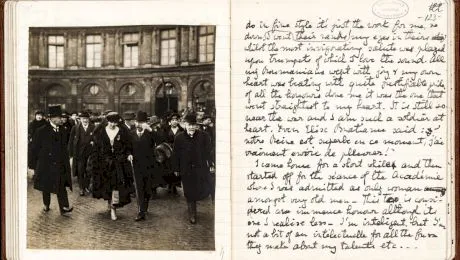 -123-
do in fine style it's just the work for me,
down I went their ranks my eyes in theirs
whilst the most invigorating salute was played
upon trumpets of which I love the sound. All
my Roumanians wept with joy & my own
heart was beating with quite pride,
of all the honours done me it was the one that
went straightest to my heart. It is still so
near the war and I am such a soldier at
heart. Even Elise Bratianu said:
nôtre Reine est superbe en ce moment, j'ai
vraiment envie de pleurer!
I came home for a short while and then
started off for the séance of the Académie
where I was admitted as only woman
amongst very old men. This too is consi-
dered an immense honour although it's
one I realise less. I'm inteligent, but I'm
not a bit of an intelectuelle for all the fuss
they make about my talents etc...